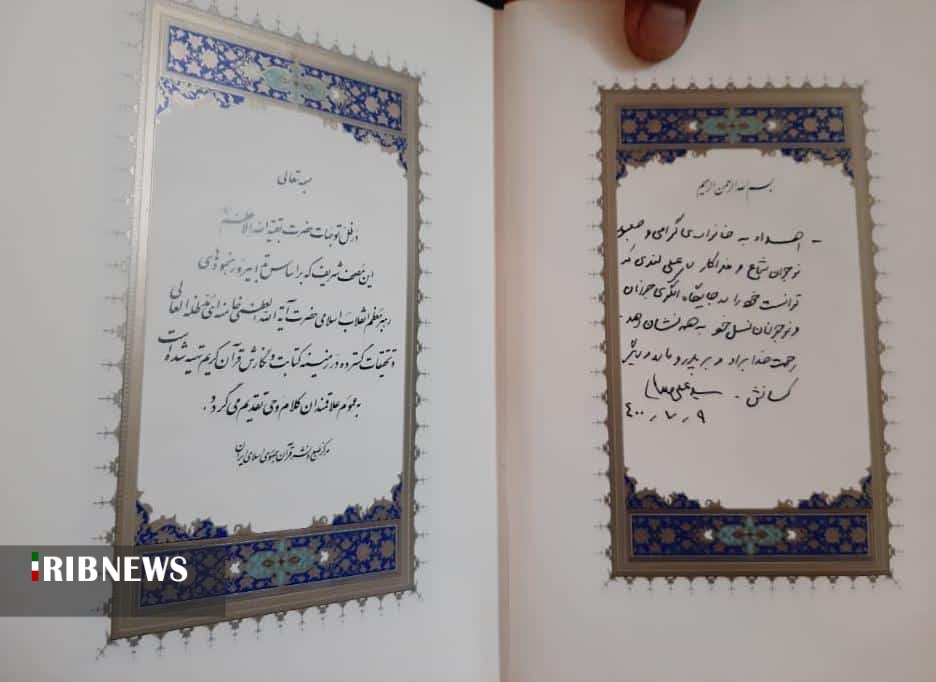 بسم الله الرحمن الرحیم
- اهداء به خانواده‌ی گرامی و صبور
نوجوان شجاع و فداکار علی لندی که
توانست خود را به جایگاه الگوی جوانان
و نوجوانان نسل خود به همه نشان دهد.
رحمت خدا بر او و بر پدر و مادر و دیگر
کسانش. سید علی خامنه‌ای
۴۰۰٫۷٫۹
بسمه تعالی
در ظل توجهات حضرت بقیة الله الاعظم
این مصحف شریف که بر اساس تدابیر و رهنمودهای
رهبر معظم انقلاب اسلامی حضرت آیة الله العظمی خامنه‌ای مدظله العالی
و تحقیقات گسترده در زمینه کتابت و نگارش قرآن کریم تهیه شده است
به عموم علاقمندان کلام وحی تقدیم می‌گردد.
مرکز طبع و نشر قرآن جمهوری اسلامی ایران
IRIBNEWS